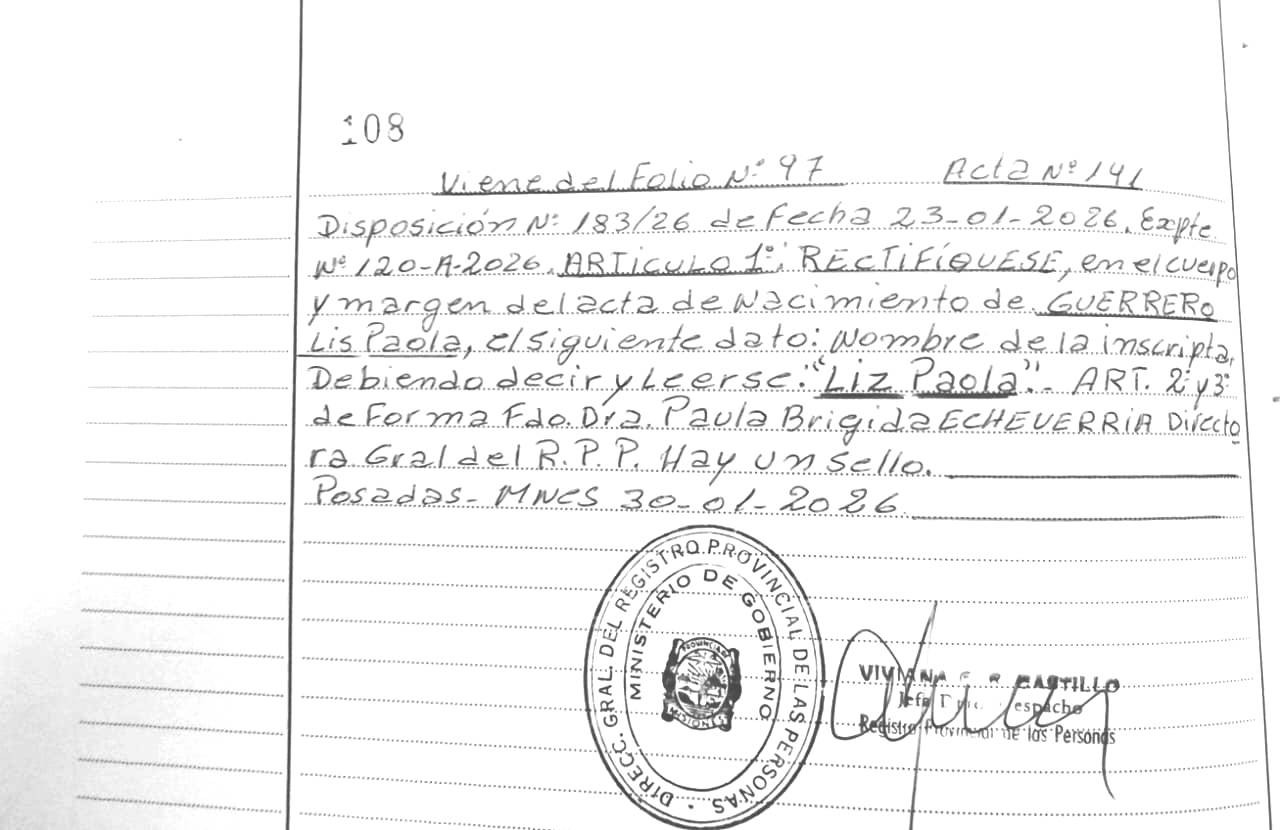 108
Viene del Folio Nº 97 Acta Nº 141
Disposición Nº 183/26 de Fecha 23-01-2026. Expte.
Nº 120-A-2026. ARTICULO 1º: RECTIFÍQUESE, en el cuerpo
y margen del acta de Nacimiento de GUERRERO
Lis Paola, el siguiente dato: Nombre de la inscripta,
Debiendo decir y Leerse: "Liz Paola".- ART. 2º y 3º
de Forma Fdo. Dra. Paula Brigida ECHEVERRIA Directo
ra Gral del R.P.P. Hay un Sello.
Posadas - MNES 30-01-2026
DIRECC. GRAL. DEL REGISTRO PROVINCIAL DE LAS PERSONAS
MINISTERIO DE GOBIERNO
PROVINCIA
MISIONES
VIVIANA CASTILLO
Jefa
Registro Provincial de las Personas